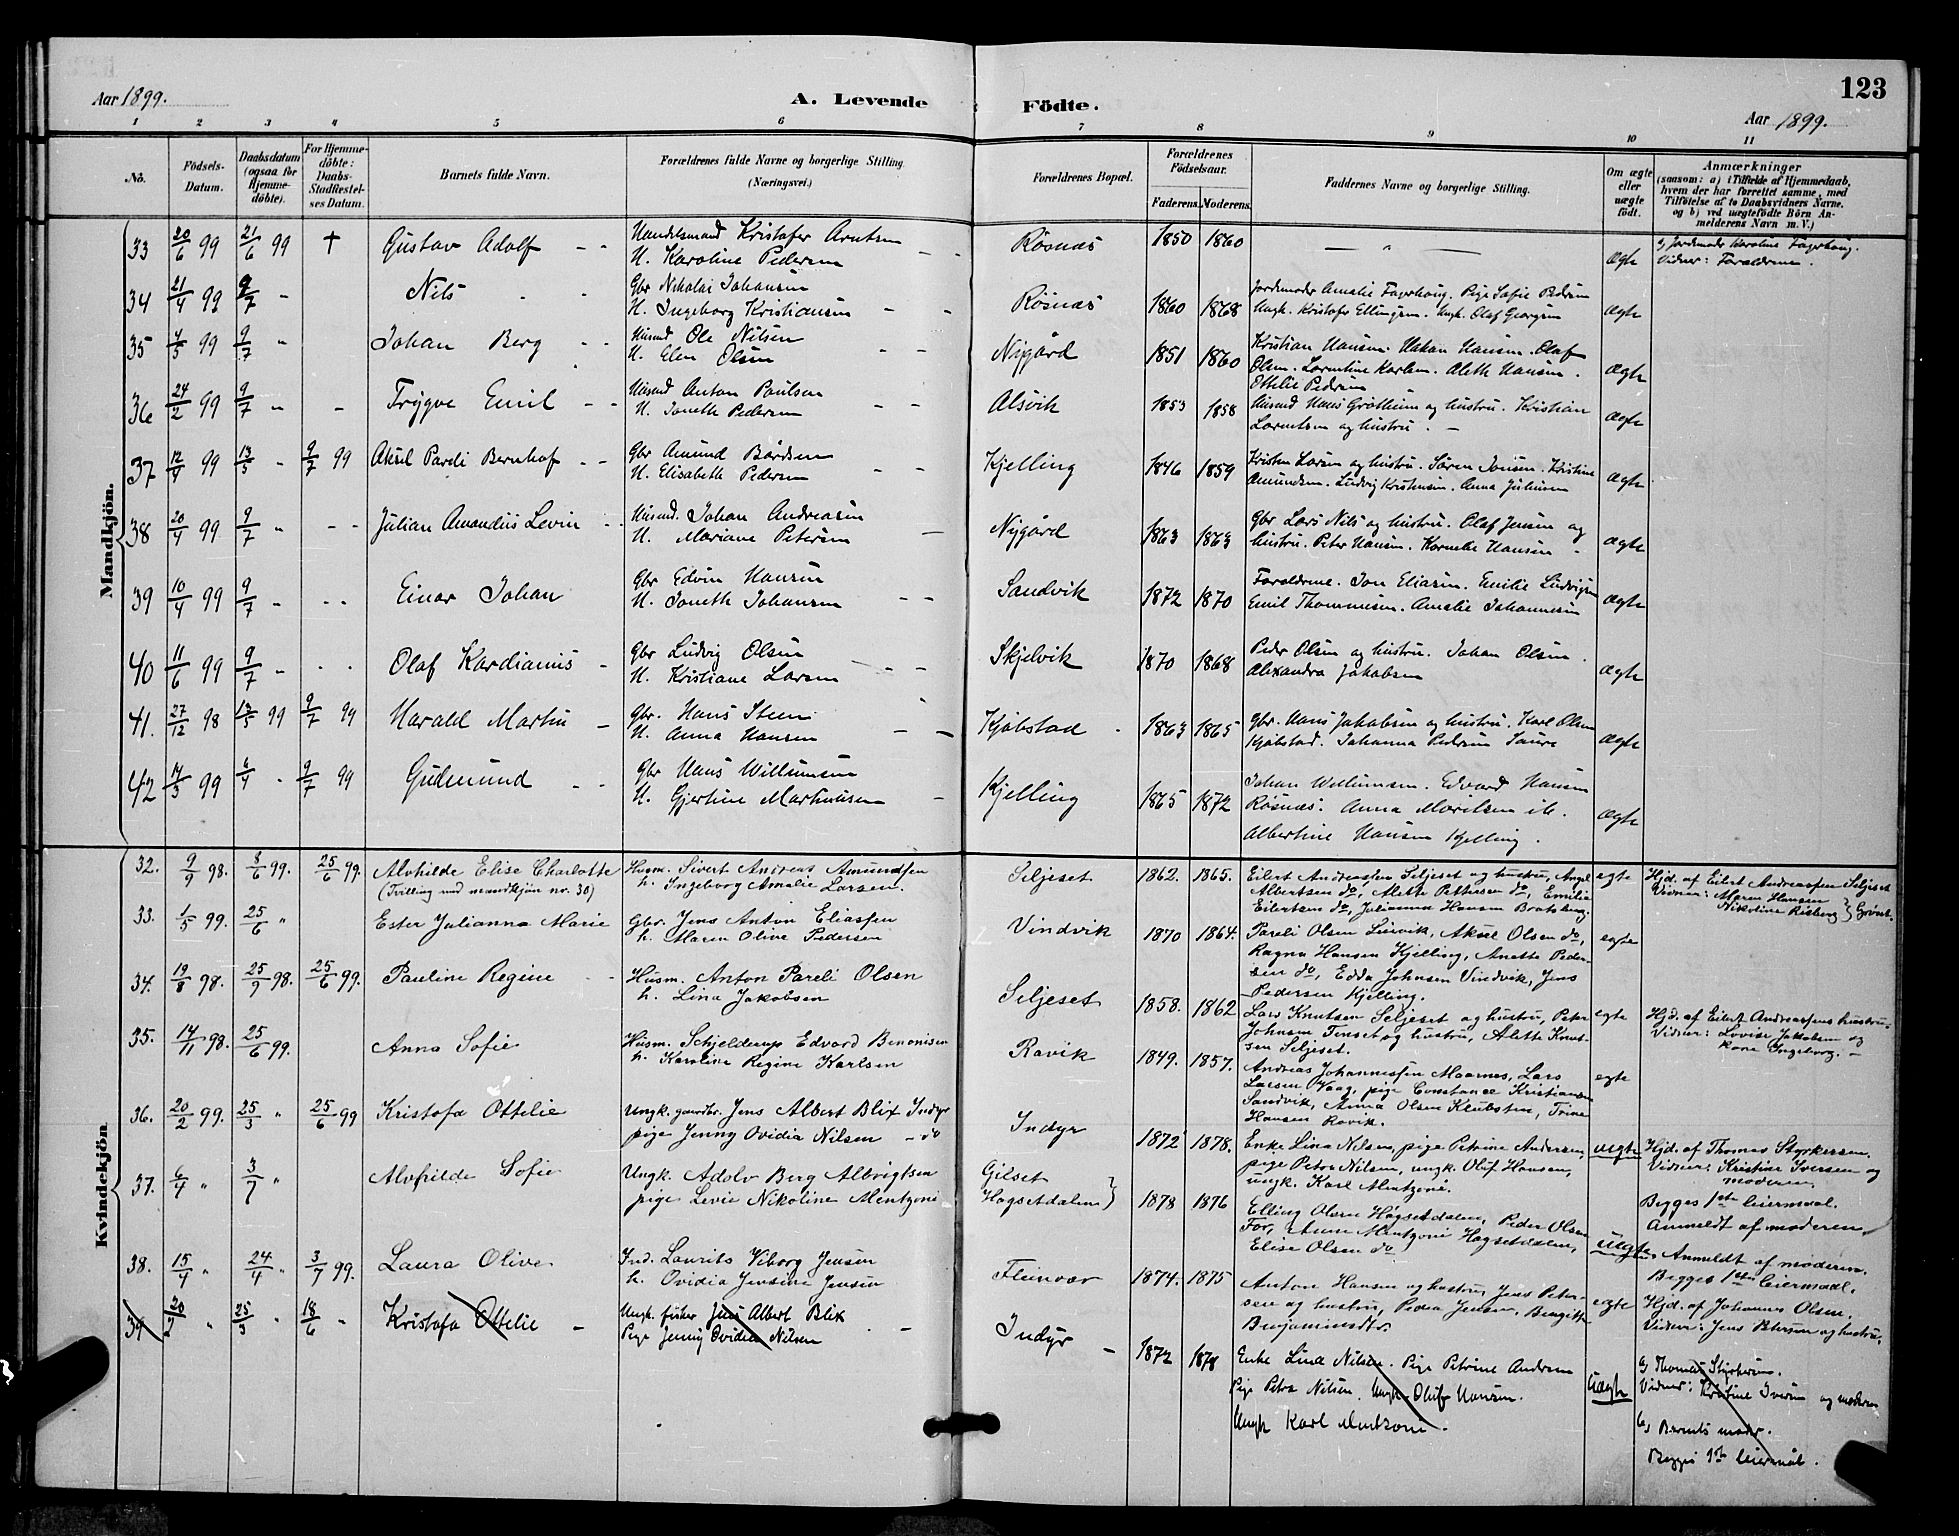 123
Aar 1899.
A. Levende Födte.
Aar 1899.
1 2 3 4 5 6 7 8 9 10 11
No.
Födsels-Datum.
Daabsdatum (ogsaa for Hjemme-döbte).
For Hjemme-döbte: Daabs-Stadfæstel-ses Datum.
Barnets fulde Navn.
Forældrenes fulde Navne og borgerlige Stilling. (Næringsvei.)
Forældrenes Bopæl.
Forældrenes Födselsaar.
Faderens. Moderens.
Faddernes Navne og borgerlige Stilling.
Om ægte eller uægte födt.
Anmærkninger
(saasom: a) i Tilfælde af Hjemmedaab,
hvem der har forrettet samme, med
Tilföielse af to Daabsvidners Navne,
og b) ved uægtefödte Börn An-
melderens Navn m. V.)
Mandkjön.
33 20/6 99 21/6 99 † Gustav Adolf - - Handelsmand Kristofer Arntsen Røsnæs 1850 1860 — " — ægte a, Jordemoder Karoline Fagerhaug.
H. Karoline Pedersen Vidner: Forældrene.
34 21/4 99 9/7 - Nils Gbr Nikolai Johansen Røsnæs 1860 1868 Jordemoder Amalie Fagerhaug. Pige Sofie Pedersen ægte
H. Ingeborg Kristiansen Ungk. Kristofer Ellingsen. Ungk. Olaf Georgsen
35 4/5 99 9/7 " Johan Berg - - Husmd Ole Nilsen Nygård 1851 1860 Kristian Hansen. Hakon Hansen. Olaf ægte
H. Elen Olsen Olsen. Lorentine Karlsen. Aleth Hansen.
Ottelie Pedersen
36 24/2 99 9/7 " - Trygve Emil - - Husmd Anton Poulsen Alsvik 1853 1858 Husmd Hans Grotheim og hustru. Kristian ægte
H. Joneth Pedersen Lorentsen og hustru. -
37 12/4 99 13/5 " 9/7 99 Aksel Pareli Bernhof - - Gbr Amund Bårdsen Kjelling 1846 1859 Kristen Larsen og hustru. Sören Jonsen. Kristine ægte
H. Elisabeth Pedersen Amundsen. Ludvig Kristensen. Anna Juliussen
38 20/4 99 9/7 " - - Julian Amandus Levin - - Husmd. Johan Andreasen Nygård 1863 1863 Gbr Lars Nils og hustru. Olaf Jensen og ægte
H. Mariane Petersen hustru. Peter Hansen. Kornelie Hansen -
39 10/4 99 9/7 " - - Einar Johan Gbr Edvin Hansen Sandvik 1872 1870 Forældrene. Jon Eliasen. Emilie Ludvigsen ægte
H. Joneth Johansen Emil Thommesen. Amalie Johannesen
40 11/6 99 9/7 " - - Olaf Kardianus - Gbr Ludvig Olsen Skjelvik 1870 1868 Peder Olsen og hustru. Johan Olsen. ægte
H. Kristiane Larsen Alexandra Jakobsen
41. 27/12 98 13/5 99 9/7 99 Harald Martin - Gbr. Hans Steen Kjøbstad 1863 1865 Gbr. Hans Jakobsen og hustru. Karl Olsen ægte
H. Anna Hansen Kjøbstad. Johanna Pedersen Saura
42 14/3 99 6/4 " 9/7 99 Gudmund - - Gbr Hans Willumsen Kjelling 1865 1872 Johan Willumsen. Edvard Hansen ægte
H. Gjertine Martinusen Røsnæs. Anna Moritsen ib.
Albertine Hansen Kjelling.
Kvindekjön
32. 9/9 98. 8/6 99. 25/6 99. Alvhilde Elise Charlotte Husm. Sivert Andreas Amundsen Seljeset 1862. 1865. Eilert Andreassen Seljeset og hustru, Angel egte Hjd. af Eilert Andreassen Seljeset
(Tvilling med mandkjön nr. 30) h. Ingeborg Amalie Larsen. Albertsen do, Alette Pettersen do, Emilie Vidner: Maren Hansen
Eilertsen do, Julianna Hansen Bratsberg. Nikoline Risberg } Grönt.
33. 1/5 99. 25/6 " Ester Julianna Marie Gbr. Jens Anton Eliassen Vindvik 1870 1864. Pareli Olsen Leirvik, Aksel Olsen do, egte
h. Maren Olive Pedersen Ragna Hansen Kjelling, Anette Peder-
sen do, Edda Johnsen Vindvik, Jens
Pedersen Kjelling.
34. 19/8 98. 25/9 98. 25/6 99. Pauline Regine Husm. Anton Pareli Olsen Seljeset 1858. 1862 Lars Knutsen Seljeset og hustru, Peter egte Hjd. af Eilert Andreassens hustru.
h. Lina Jakobsen Johnsen Tinset og hustru, Alette Knut- Vidner: Lovise Jakobsen og
sen Seljeset. kone Ingeborg. -
35. 14/11 98. 25/6 99. Anna Sofie Husm. Schjelderup Edvard Benonisen Ravik 1849. 1857. Andreas Johannessen Maarnes, Lars egte
h. Karoline Regine Karlsen Larsen Vaag, pige Constance Kristiansen
Sandvik, Anna Olsen Klubsten, Trine
Hansen Ravik.
36. 20/2 99. 25/3 " 25/6 99 Kristofa Ottelie Ungk. gaardbr. Jens Albert Blix Indyr Indyr 1872 1878. Enke Lina Nilsen, pige Petrine Andersen, uegte Hjd. af Thomas Styrkersen.
pige Jenny Ovidia Nilsen - do pige Petra Nilsen, ungk. Oluf Hansen, Vidner: Kristine Iversen og
ungk. Karl Mentzoni. moderen.
Begges 1ste leiermaal.
37. 6/4 " 3/7 " Alvhilde Sofie Ungk. Adolv Berg Albrigtsen Gilset 1878 1876 Elling Olsen Høgsetdalen, Peder Olsen uegte Anmeldt af moderen
pige Levie Nikoline Mentzoni Høgsetdalen } For, Anne Mentzoni Høgsetdalen, Anmeldt af moderen.
Elise Olsen do Begges 1ste leiermaal.
38. 15/4 " 24/4 " 3/7 99. Laura Olive Ind. Laurits Viborg Jensen Fleinvær 1874. 1875 Anton Hansen og hustru, Jens Peter- egte Hjd. af Johannes Olsen.
h. Ovidia Jensine Jensen sen og hustru, Pedea Jensen, Bergitte Vidner: Jens Petersen og hustru.
Benjaminsdtr
39 20/2 " 25/3 " 18/6 " Kristofa Ottelie - Ungk. fisker Jens Albert Blix Indyr - 1872 1878 Enke Lina Nilsen. Pige Petrine Andersen Uægte a, Thomas Styrkersen.
Pige Jenny Ovidia Nilsen Pige Petra Nilsen. Ungk. Oluf Hansen. Vidner: Kristine Iversen og moderen
Ungk Karl Mentzoni. b, Barnets moder.
Begges 1ste leiermål.